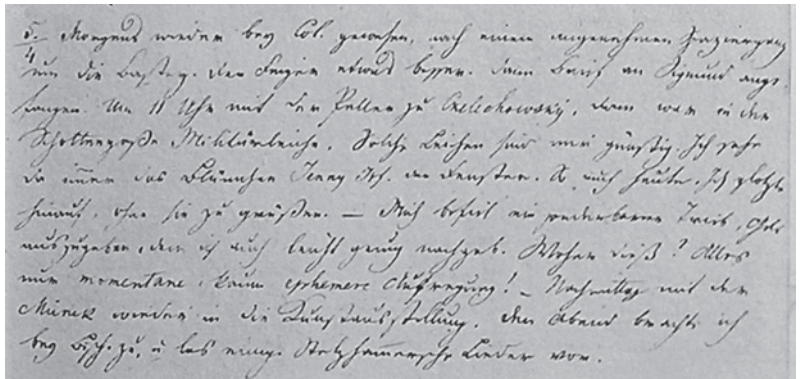 5. Morgens wieder bey Col. gewesen, nach einem angenehmen Spaziergang
4 um die Bastey. Der Finger etwas besser. Dann Brief an Sigmund ange-
fangen. Um 11 Uhr mit der Peller zu Czelechowsky, dann war in der
Schottengaße Militärleiche. Solche Leichen sind mir günstig. Ich sehe
da immer das Blümchen Jenny am Fenster. So auch heute. Ich
hinauf, ohne sie zu grüßen. — Mich befiel ein sonderbarer Trieb,
auszugeben, dem ich auch leicht genug nachgeb. Woher dieß? Alles
nur momentane, kaum ephemere Aufregung! – Nachmittag mit der
Münek wieder in die Kunstausstellung. Den Abend brachte ich
bey zu, u las einige Stelzhammersche Lieder vor.